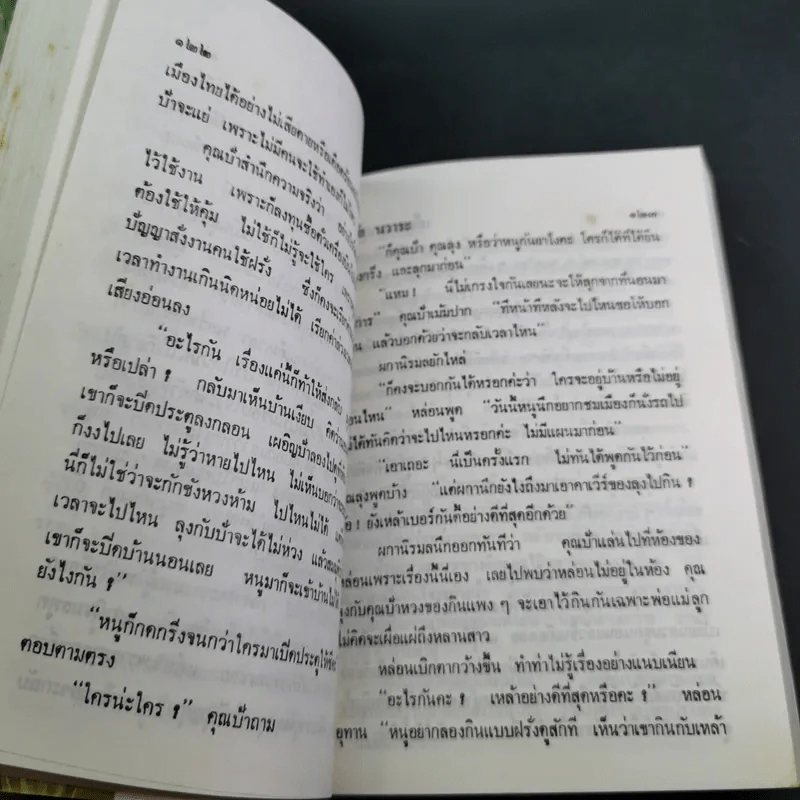 ๑๒๒
เมืองไทยได้อย่างไม่เสียดายหรือเดือดร้อน
ป้าจะแย่ เพราะไม่มีคนจะใช้ทำ
คุณป้าสำนึกความจริงว่า
ไว้ใช้งาน เพราะก็ลงทุนซื้อตั๋วเครื่องบิน
ต้องใช้ให้คุ้ม ไม่ใช้ก็ไม่รู้จะใช้ใคร
ปัญญาสั่งงานคนใช้ฝรั่ง ซึ่งก็คงจะเรียก
เวลาทำงานเกินนิดหน่อยไม่ได้ เรียกค่า
เสียงอ่อนลง
“อะไรกัน เรื่องแค่นี้ก็ทำให้ส่งกลับ
หรือเปล่า ? กลับมาเห็นบ้านเงียบ คิดว่า
เขาก็จะปิดประตูลงกลอน เผอิญป้าลองไป
ก็งงไปเลย ไม่รู้ว่าหายไปไหน ไม่เห็นบอก
นี่ก็ไม่ใช่ว่าจะกักขังหวงห้าม ไปไหนไม่ได้
เวลาจะไปไหน ลุงกับป้าจะได้ไม่ห่วง แล้ว
เขาก็จะปิดบ้านนอนเลย หนูมาก็จะเข้าบ้าน
ยังไงกัน ?”
“หนูก็กดกริ่งจนกว่าใครมาเปิดประตูให้
ตอบตามตรง
“ใครน่ะใคร ?” คุณป้าถาม
นวาระ ๑๒๓
“ก็คุณป้า คุณลุง หรือว่าหนูกันยาไงคะ ใครก็ได้ที่ได้ยิน
และลุกมาก่อน”
“แหม ! นี่ไม่เกรงใจกันเลยนะจะให้ลุกจากที่นอนมา
คุณป้าเม้มปาก “ทีหน้าทีหลังจะไปไหนขอให้บอก
แล้วบอกด้วยว่าจะกลับเวลาไหน”
ผกานิรมลยักไหล่
“ก็คงจะบอกกันได้หรอกค่ะว่า ใครจะอยู่บ้านหรือไม่อยู่
หล่อนพูด “วันนี้หนูนึกอยากชมเมืองก็นั่งรถไป
ได้ทันคิดว่าจะไปไหนหรอกค่ะ ไม่มีแผนมาก่อน”
“เอาเถอะ นี่เป็นครั้งแรก ไม่ทันได้พูดกันไว้ก่อน”
คุณลุงพูดบ้าง “แต่ผกานึกยังไงถึงมาเอาคาเวียร์ของลุงไปกิน ?
! ยังเหล้าเบอร์กันดีอย่างดีที่สุดอีกด้วย”
ผกานิรมลนึกออกทันทีว่า คุณป้าแล่นไปที่ห้องของ
หล่อนเพราะเรื่องนี้นี่เอง เลยไปพบว่าหล่อนไม่อยู่ในห้อง คุณ
ลุงกับคุณป้าหวงของกินแพง ๆ จะเอาไว้กินกันเฉพาะพ่อแม่ลูก
ไม่คิดจะเผื่อแผ่ถึงหลานสาว
หล่อนเบิกตากว้างขึ้น ทำท่าไม่รู้เรื่องอย่างแนบเนียน
“อะไรกันคะ ! เหล้าอย่างดีที่สุดหรือคะ ?” หล่อน
อุทาน “หนูอยากลองกินแบบฝรั่งดูสักที เห็นว่าเขากินกับเหล้า